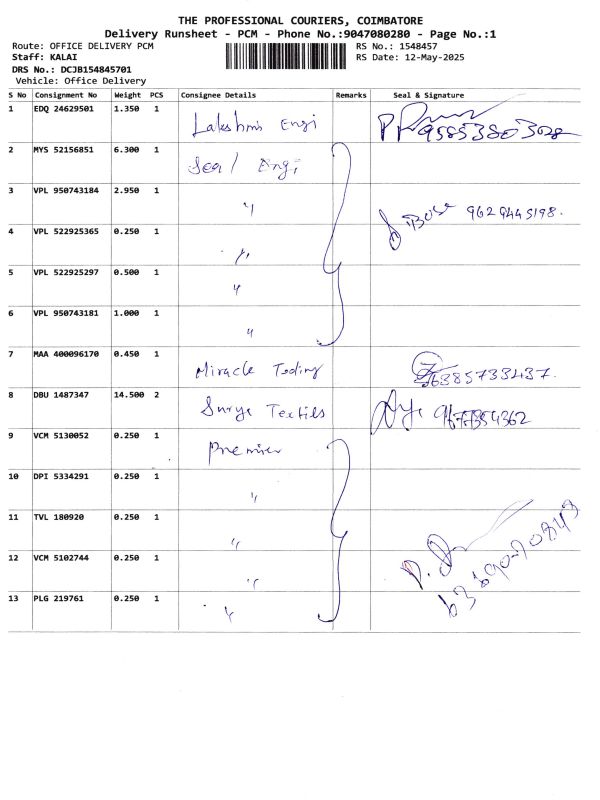 THE PROFESSIONAL COURIERS, COIMBATORE
Delivery Runsheet - PCM - Phone No.:9047080280 - Page No.:1
Route: OFFICE DELIVERY PCM RS No.: 1548457
Staff: KALAI RS Date: 12-May-2025
DRS No.: DCJB154845701
Vehicle: Office Delivery
S No Consignment No Weight PCS Consignee Details Remarks Seal & Signature
1 EDQ 24629501 1.350 1 Lakshmi Engi 9585380308
2 MYS 52156851 6.300 1 Seal Engi
3 VPL 950743184 2.950 1 " Bose 9629445198.
4 VPL 522925365 0.250 1 "
5 VPL 522925297 0.500 1 "
6 VPL 950743181 1.000 1 "
7 MAA 400096170 0.450 1 Miracle Trading 6385733437.
8 DBU 1487347 14.500 2 Surya Textiles
9 VCM 5130052 0.250 1 Premier
10 DPI 5334291 0.250 1 "
11 TVL 180920 0.250 1 "
12 VCM 5102744 0.250 1 "
13 PLG 219761 0.250 1 "